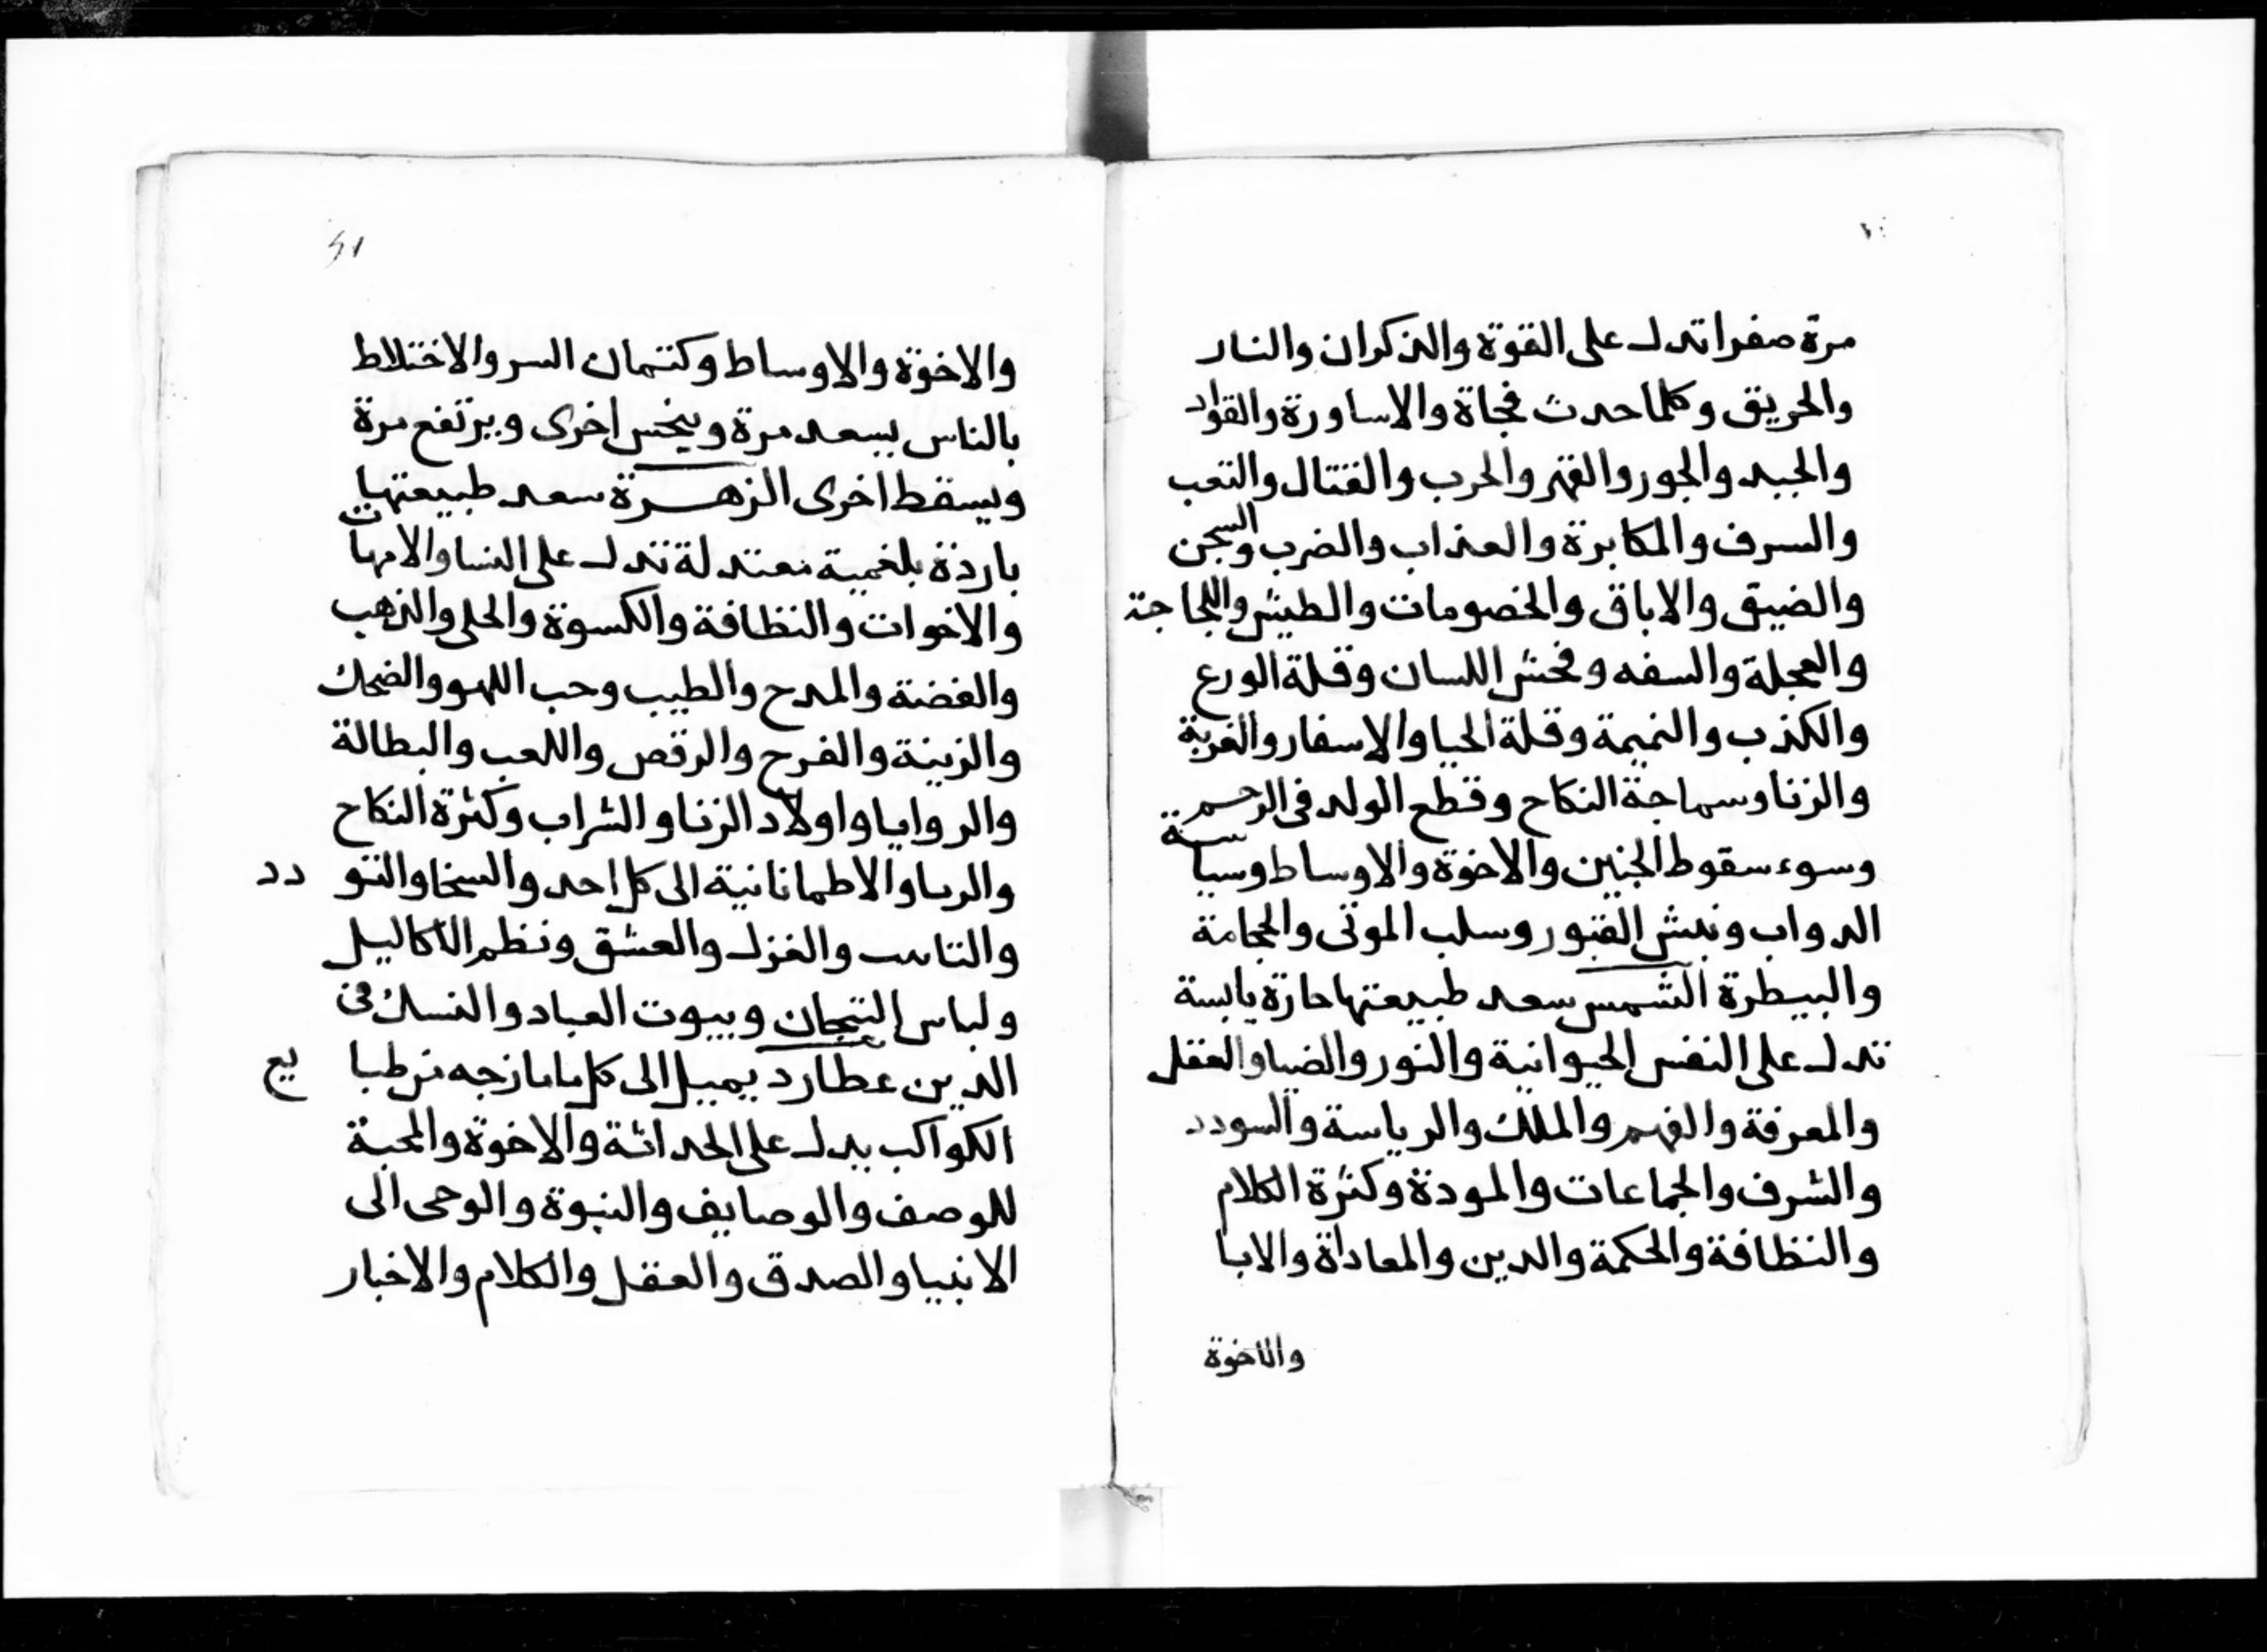 مرة صفرا تدل على القوة والذكران والنار
والحريق وكلما حدث فجاة والاساورة والقواد
والجبد والجور والقهر والحرب والقتال والتعب
والسرف والمكابرة والعذاب والضرب والسجن
والضيق والاباق والخصومات والطيش واللجاجة
والعجلة والسفه وفحش اللسان وقلة الورع
والكذب والنميمة وقلة الحيا والاسفار والغربة
والزنا وسماجة النكاح وقطع الولد في الرحم
وسوء سقوط الجنين والاخوة والاوساط وسياسة
الدواب ونبش القبور وسلب الموتى والحجامة
والبيطرة الشمس سعد طبيعتها حارة يابسة
تدل على النفس الحيوانية والنور والضيا والعقل
والمعرفة والفهم والملك والرياسة والسودد
والشرف والجماعات والمودة وكثرة الكلام
والنظافة والحكمة والدين والمعاداة والابا
والاخوة
والاخوة والاوساط وكتمان السر والاختلاط
بالناس يسعد مرة وينحس اخرى ويرتفع مرة
ويسقط اخرى الزهرة سعد طبيعتها
باردة بلغمية معتدلة تدل على النسا والامهات
والاخوات والنظافة والكسوة والحلى والذهب
والفضة والمدح والطيب وحب اللهو والضحك
والزينة والفرح والرقص واللعب والبطالة
والروايا واولاد الزنا والشراب وكثرة النكاح
والربا والاطمانانية الى كل احد والسخا والتودد
والغزل والعشق ونظم الاكاليل
ولباس التيجان وبيوت العباد والنسك في
الدين عطارد يميل الى كل ما مازجه من طبايع
الكواكب يدل على الحداثة والاخوة والمحبة
للوصف والوصايف والنبوة والوحى الى
الانبيا والصدق والعقل والكلام والاخبار